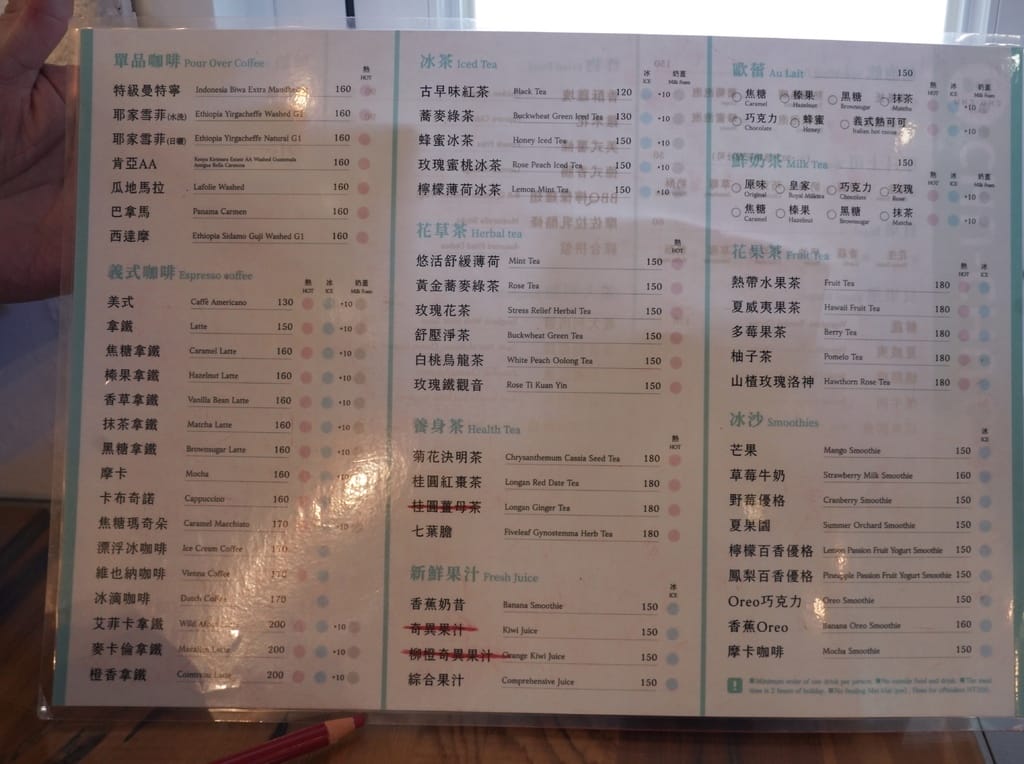 單品咖啡 Pour Over Coffee
熱 HOT
特級曼特寧 Indonesia Biwa Extra Mandheling 160
耶家雪菲(水洗) Ethiopia Yirgacheffe Washed G1 160
耶家雪菲(日曬) Ethiopia Yirgacheffe Natural G1 160
肯亞AA Kenya Kirimara Estate AA Washed Guatemala Antigua Bella Carmona 160
瓜地馬拉 Lafolie Washed 160
巴拿馬 Panama Carmen 160
西達摩 Ethiopia Sidamo Guji Washed G1 160
義式咖啡 Espresso coffee
熱 HOT 冰 ICE 奶蓋 Milk Foam
美式 Caffè Americano 130 +10
拿鐵 Latte 150 +10
焦糖拿鐵 Caramel Latte 160 +10
榛果拿鐵 Hazelnut Latte 160 +10
香草拿鐵 Vanilla Bean Latte 160 +10
抹茶拿鐵 Matcha Latte 160 +10
黑糖拿鐵 Brownsugar Latte 160 +10
摩卡 Mocha 160 +10
卡布奇諾 Cappuccino 160
焦糖瑪奇朵 Caramel Macchiato 170
漂浮冰咖啡 Ice Cream Coffee 170
維也納咖啡 Vienna Coffee 170
冰滴咖啡 Dutch Coffee 170
艾菲卡拿鐵 Wild 200 +10
麥卡倫拿鐵 Macallan Latte 200 +10
橙香拿鐵 Cointreau Latte 200 +10
冰茶 Iced Tea
冰 ICE 奶蓋 Milk Foam
古早味紅茶 Black Tea 120 +10
蕎麥綠茶 Buckwheat Green Iced Tea 130 +10
蜂蜜冰茶 Honey Iced Tea 150 +10
玫瑰蜜桃冰茶 Rose Peach Iced Tea 150 +10
檸檬薄荷冰茶 Lemon Mint Tea 150 +10
花草茶 Herbal tea
熱 HOT
悠活舒緩薄荷 Mint Tea 150
黃金蕎麥綠茶 Rose Tea 150
玫瑰花茶 Stress Relief Herbal Tea 150
舒壓淨茶 Buckwheat Green Tea 150
白桃烏龍茶 White Peach Oolong Tea 150
玫瑰鐵觀音 Rose Ti Kuan Yin 150
養身茶 Health Tea
熱 HOT
菊花決明茶 Chrysanthemum Cassia Seed Tea 180
桂圓紅棗茶 Longan Red Date Tea 180
桂圓薑母茶 Longan Ginger Tea 180
七葉膽 Fiveleaf Gynostemma Herb Tea 180
新鮮果汁 Fresh Juice
冰 ICE
香蕉奶昔 Banana Smoothie 150
奇異果汁 Kiwi Juice 150
柳橙奇異果汁 Orange Kiwi Juice 150
綜合果汁 Comprehensive Juice 150
歐蕾 Au Lait 150
熱 HOT 冰 ICE 奶蓋 Milk Foam
焦糖 Caramel 榛果 Hazelnut 黑糖 Brownsugar 抹茶 Matcha +10
巧克力 Chocolate 蜂蜜 Honey 義式熱可可 Italian hot cocoa +10
鮮奶茶 Milk Tea 150
熱 HOT 冰 ICE 奶蓋 Milk Foam
原味 Original 皇家 Royal Milktea 巧克力 Chocolate 玫瑰 Rose +10
焦糖 Caramel 榛果 Hazelnut 黑糖 Brownsugar 抹茶 Matcha +10
花果茶 Fruit Tea
熱 HOT 冰 ICE
熱帶水果茶 Fruit Tea 180
夏威夷果茶 Hawaii Fruit Tea 180
多莓果茶 Berry Tea 180
柚子茶 Pomelo Tea 180
山楂玫瑰洛神 Hawthorn Rose Tea 180
冰沙 Smoothies
冰 ICE
芒果 Mango Smoothie 150
草莓牛奶 Strawberry Milk Smoothie 160
野莓優格 Cranberry Smoothie 150
夏果園 Summer Orchard Smoothie 150
檸檬百香優格 Lemon Passion Fruit Yogurt Smoothie 150
鳳梨百香優格 Pineapple Passion Fruit Yogurt Smoothie 150
Oreo巧克力 Oreo Smoothie 150
香蕉Oreo Banana Oreo Smoothie 160
摩卡咖啡 Mocha Smoothie 150
Minimum order of one drink per person. No outside food and drink. The meal
time is 2 hours of holiday.